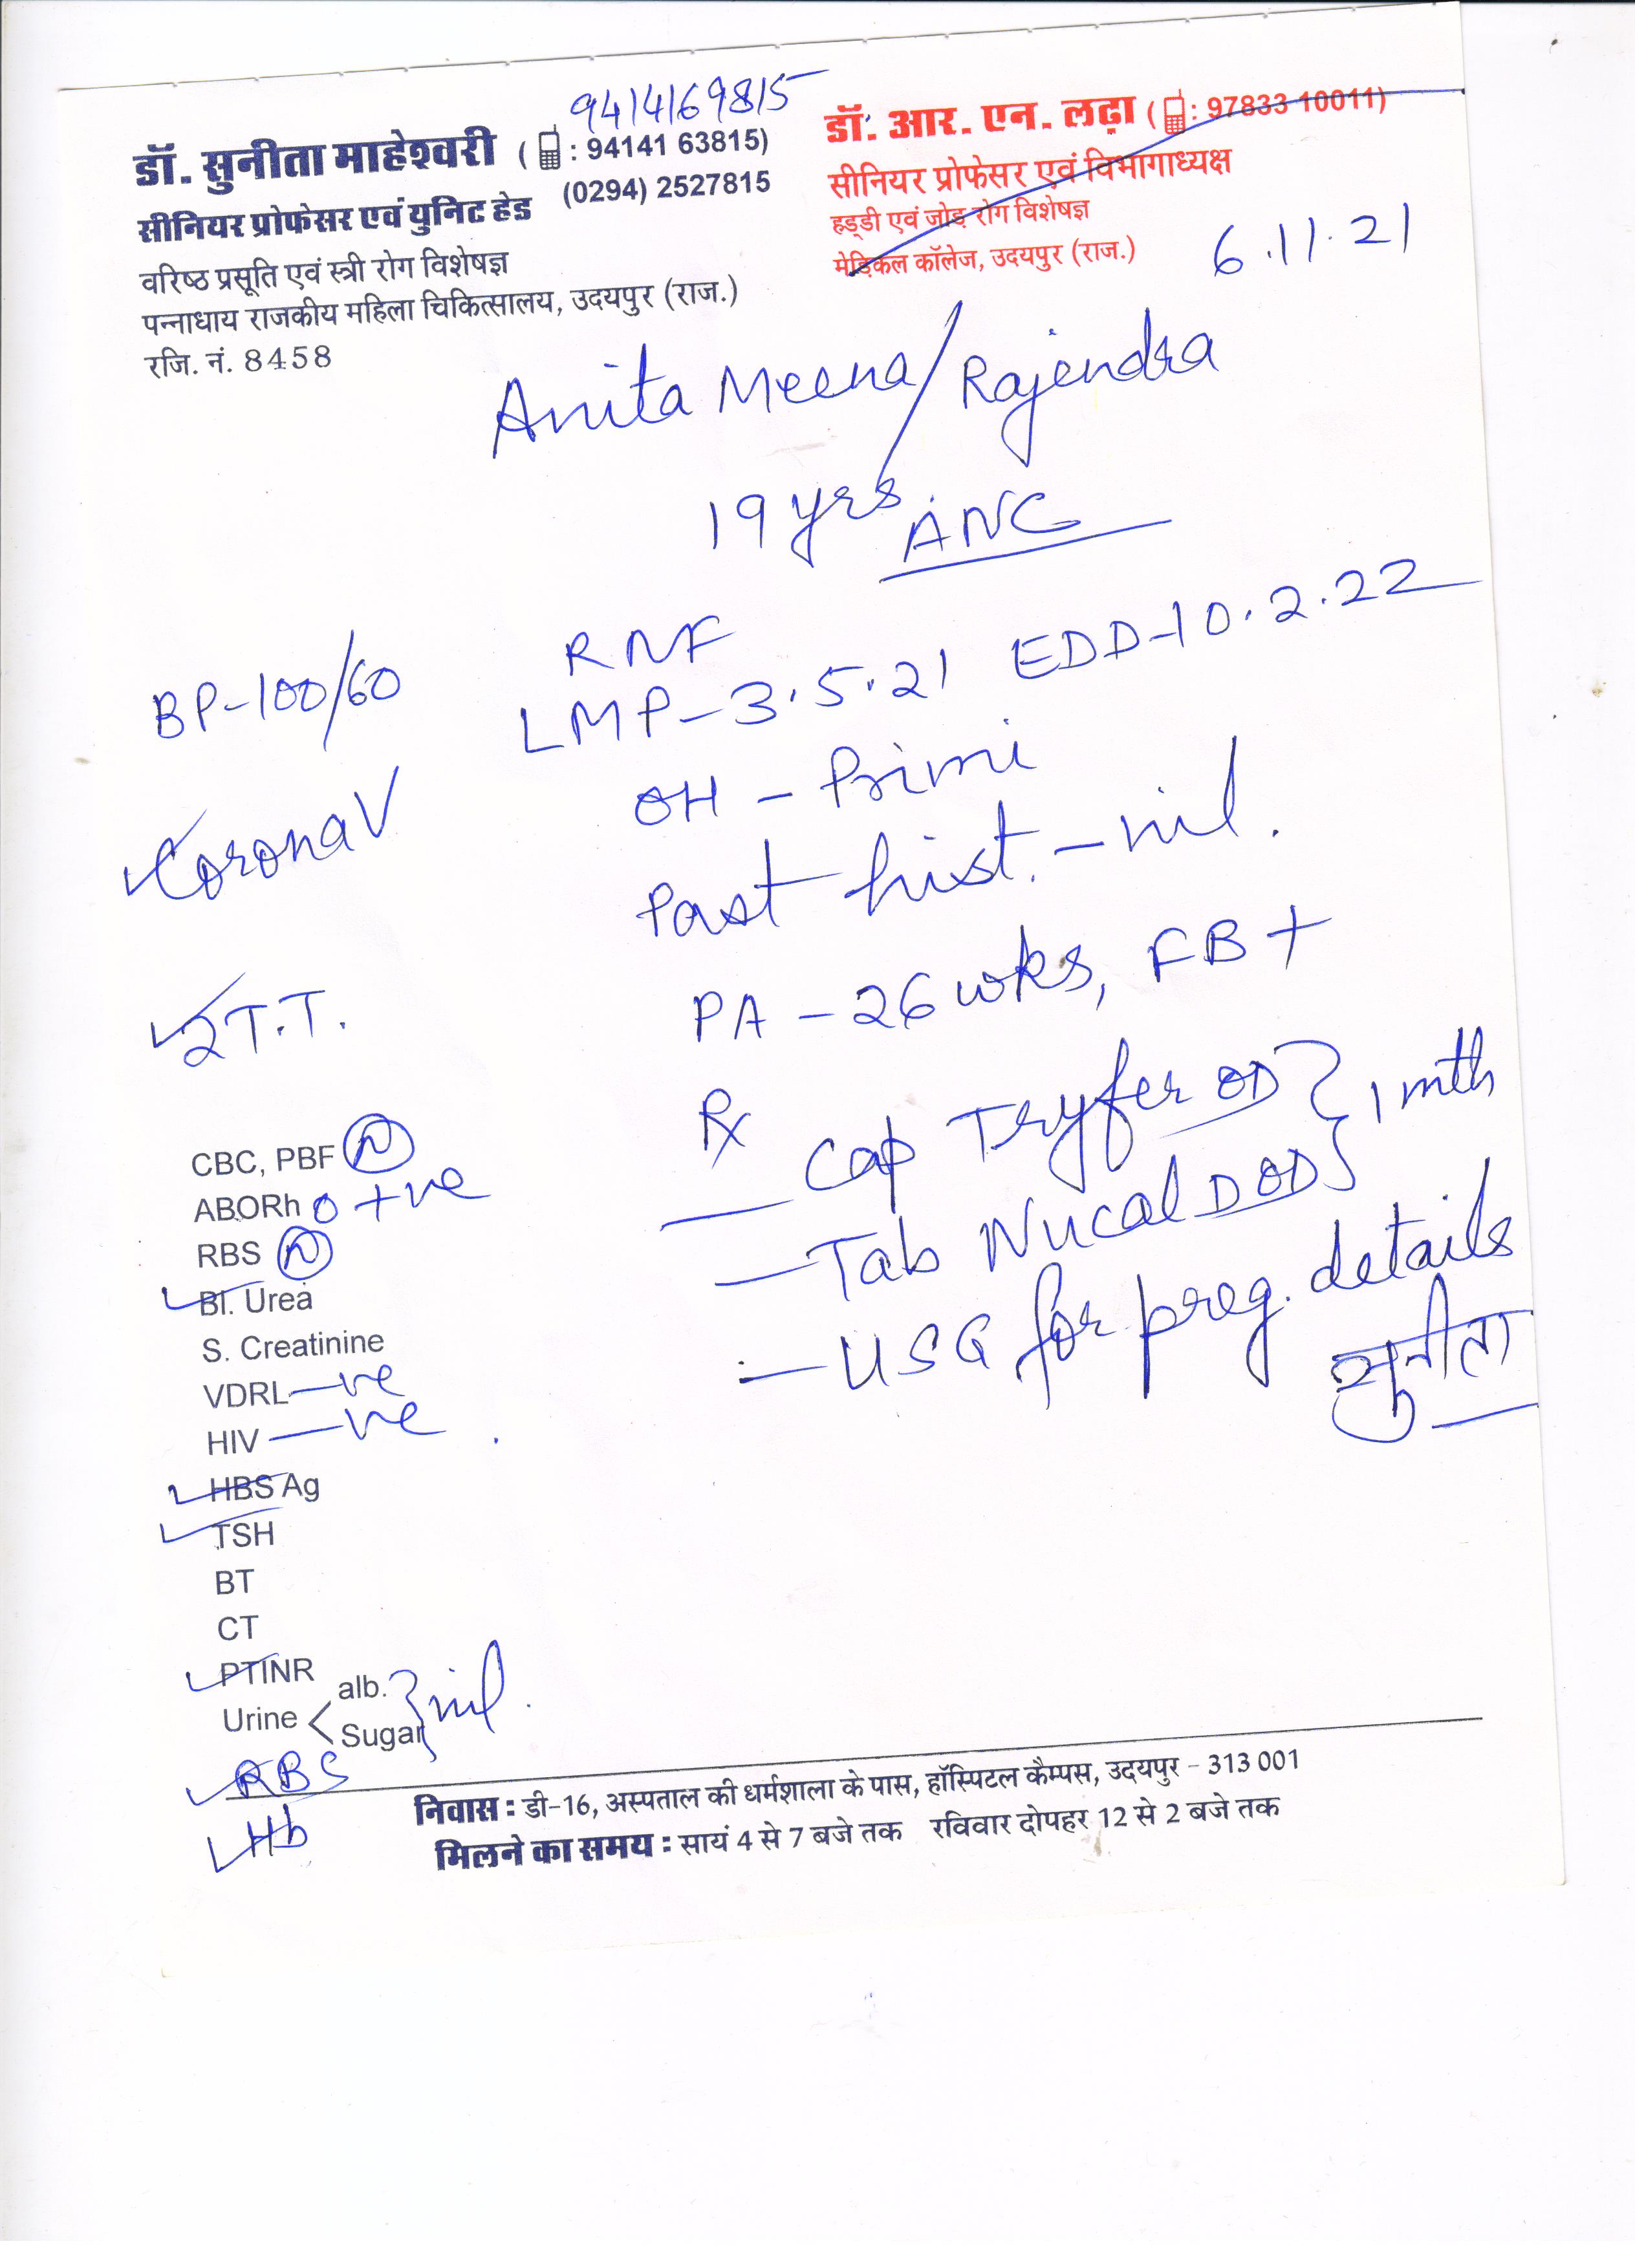 9414169815
डॉ. सुनीता माहेश्वरी ( : 94141 63815)
(0294) 2527815
सीनियर प्रोफेसर एवं युनिट हेड
वरिष्ठ प्रसूति एवं स्त्री रोग विशेषज्ञ
पन्नाधाय राजकीय महिला चिकित्सालय, उदयपुर (राज.)
रजि. नं. 8458
डॉ. आर. एन. लढ़ा ( : 97833 10011)
सीनियर प्रोफेसर एवं विभागाध्यक्ष
हड्डी एवं जोड़ रोग विशेषज्ञ
मेडिकल कॉलेज, उदयपुर (राज.)
6.11.21
Anita Meena/Rajendra
19 yrs ANC
RNF
LMP-3.5.21 EDD-10.2.22
OH - Primi
Past hist. - nil.
PA - 26 wks, FB +
Rx
- Cap Tryfer OD } 1 mth
- Tab Nucal D OD
- USG for preg. details
सुनीता
BP-100/60
Corona V
2 T.T.
CBC, PBF N
ABORh O +ve
RBS N
Bl. Urea
S. Creatinine
VDRL -ve
HIV -ve
HBS Ag
TSH
BT
CT
PTINR
Urine < alb. } nil.
Sugar
RBS
Hb
निवास : डी-16, अस्पताल की धर्मशाला के पास, हॉस्पिटल कैम्पस, उदयपुर - 313 001
मिलने का समय : सायं 4 से 7 बजे तक रविवार दोपहर 12 से 2 बजे तक